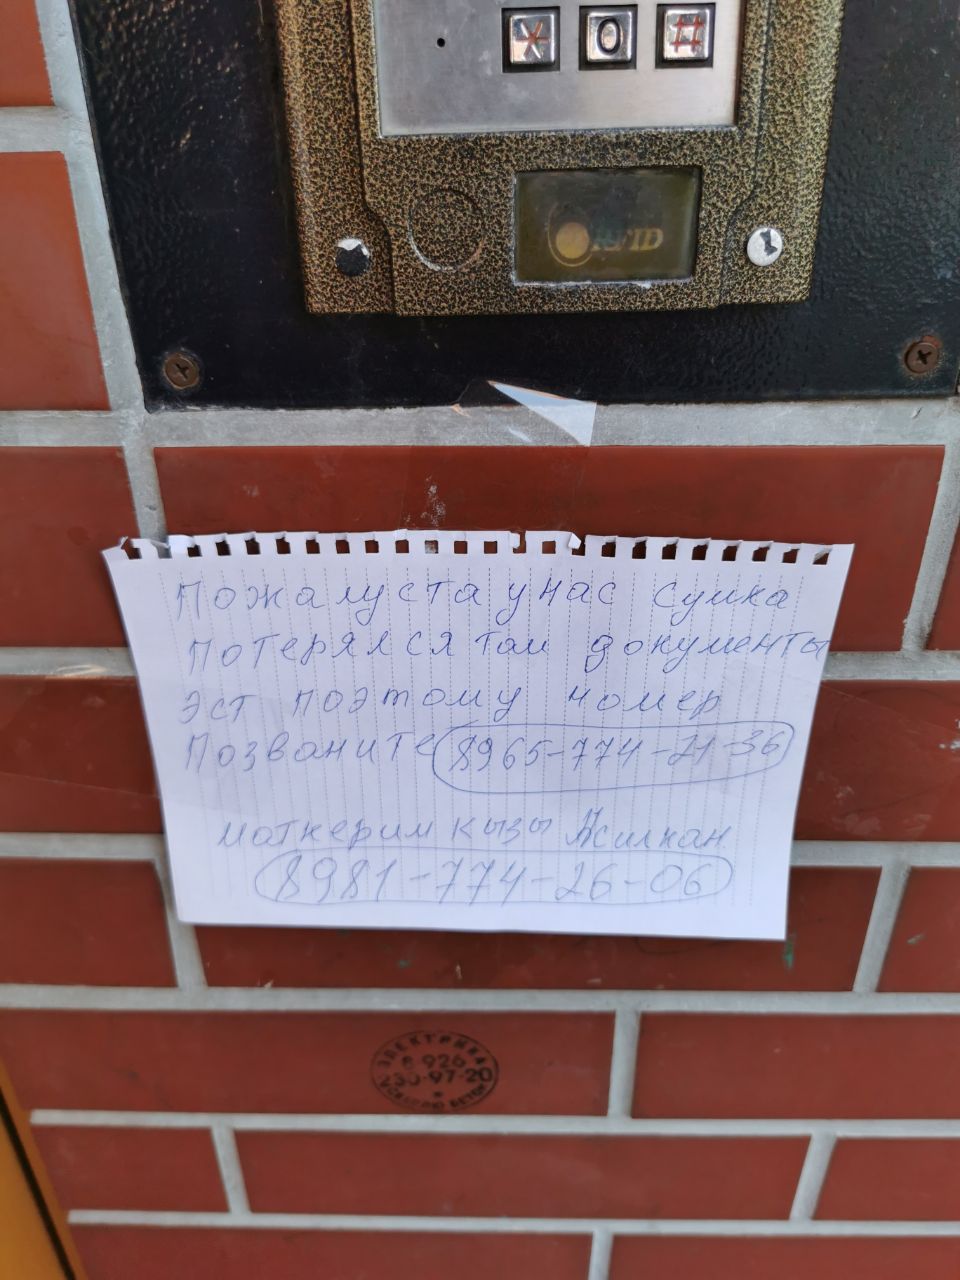 * 0 #
RFID
Пожалуста у нас сумка
потерялся там документы
эст поэтому номер
Позваните 8965-774-21-36
маткерим кызы
8981-774-26-06
ЭЛЕКТРИКА
8 926
30-97-20